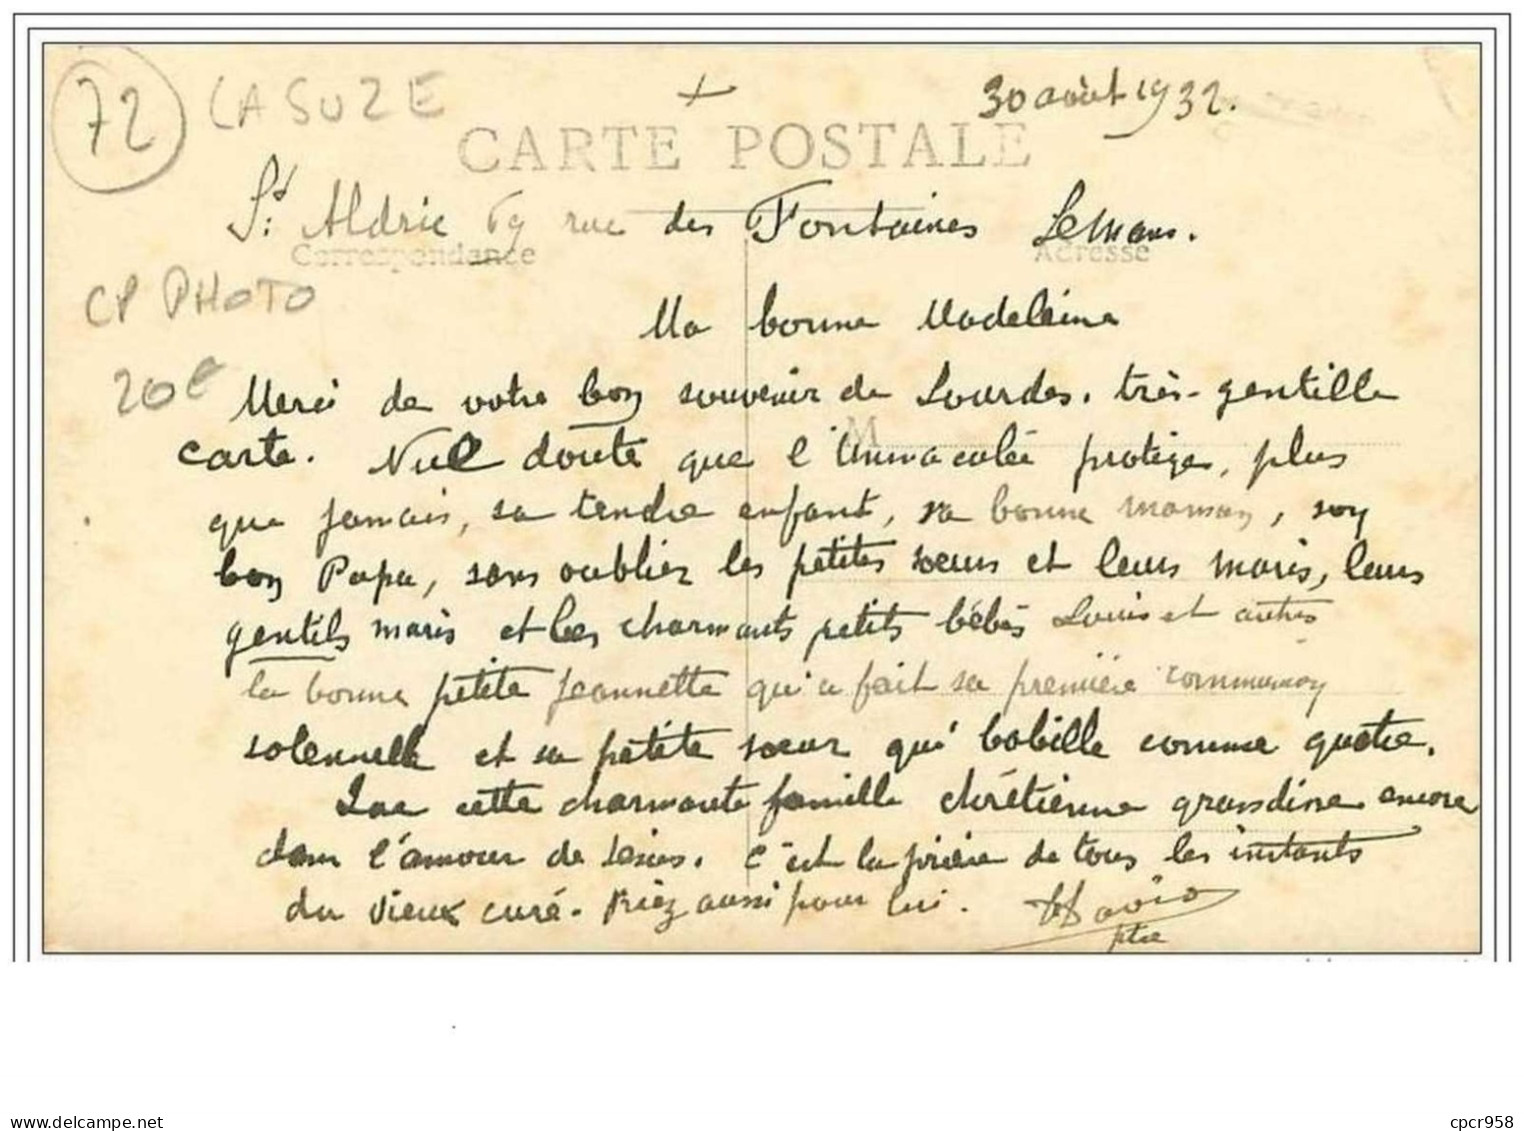 72 LA SUZE
+
30 août 1932.
CARTE POSTALE
St Aldric 69 rue des Fontaines Le Mans.
Correspondance
Adresse
CP PHOTO
20€
Ma bonne Madeleine
Merci de votre bon souvenir de Lourdes. très-gentille
M
carte. Nul doute que l'Immaculée protège, plus
que jamais, sa tendre enfant, sa bonne maman, son
bon Papa, sans oublier les petites sœurs et leurs maris, leurs
gentils maris et les charmants petits bébés Louis et autres
la bonne petite Jeannette qui a fait sa première communion
solennelle et sa petite sœur qui babille comme quatre.
Que cette charmante famille chrétienne grandisse encore
dans l'amour de Jésus. C'est la prière de tous les instants
du vieux curé. Priez aussi pour lui.
ptre
My-world.delcampe.net
cpcr958